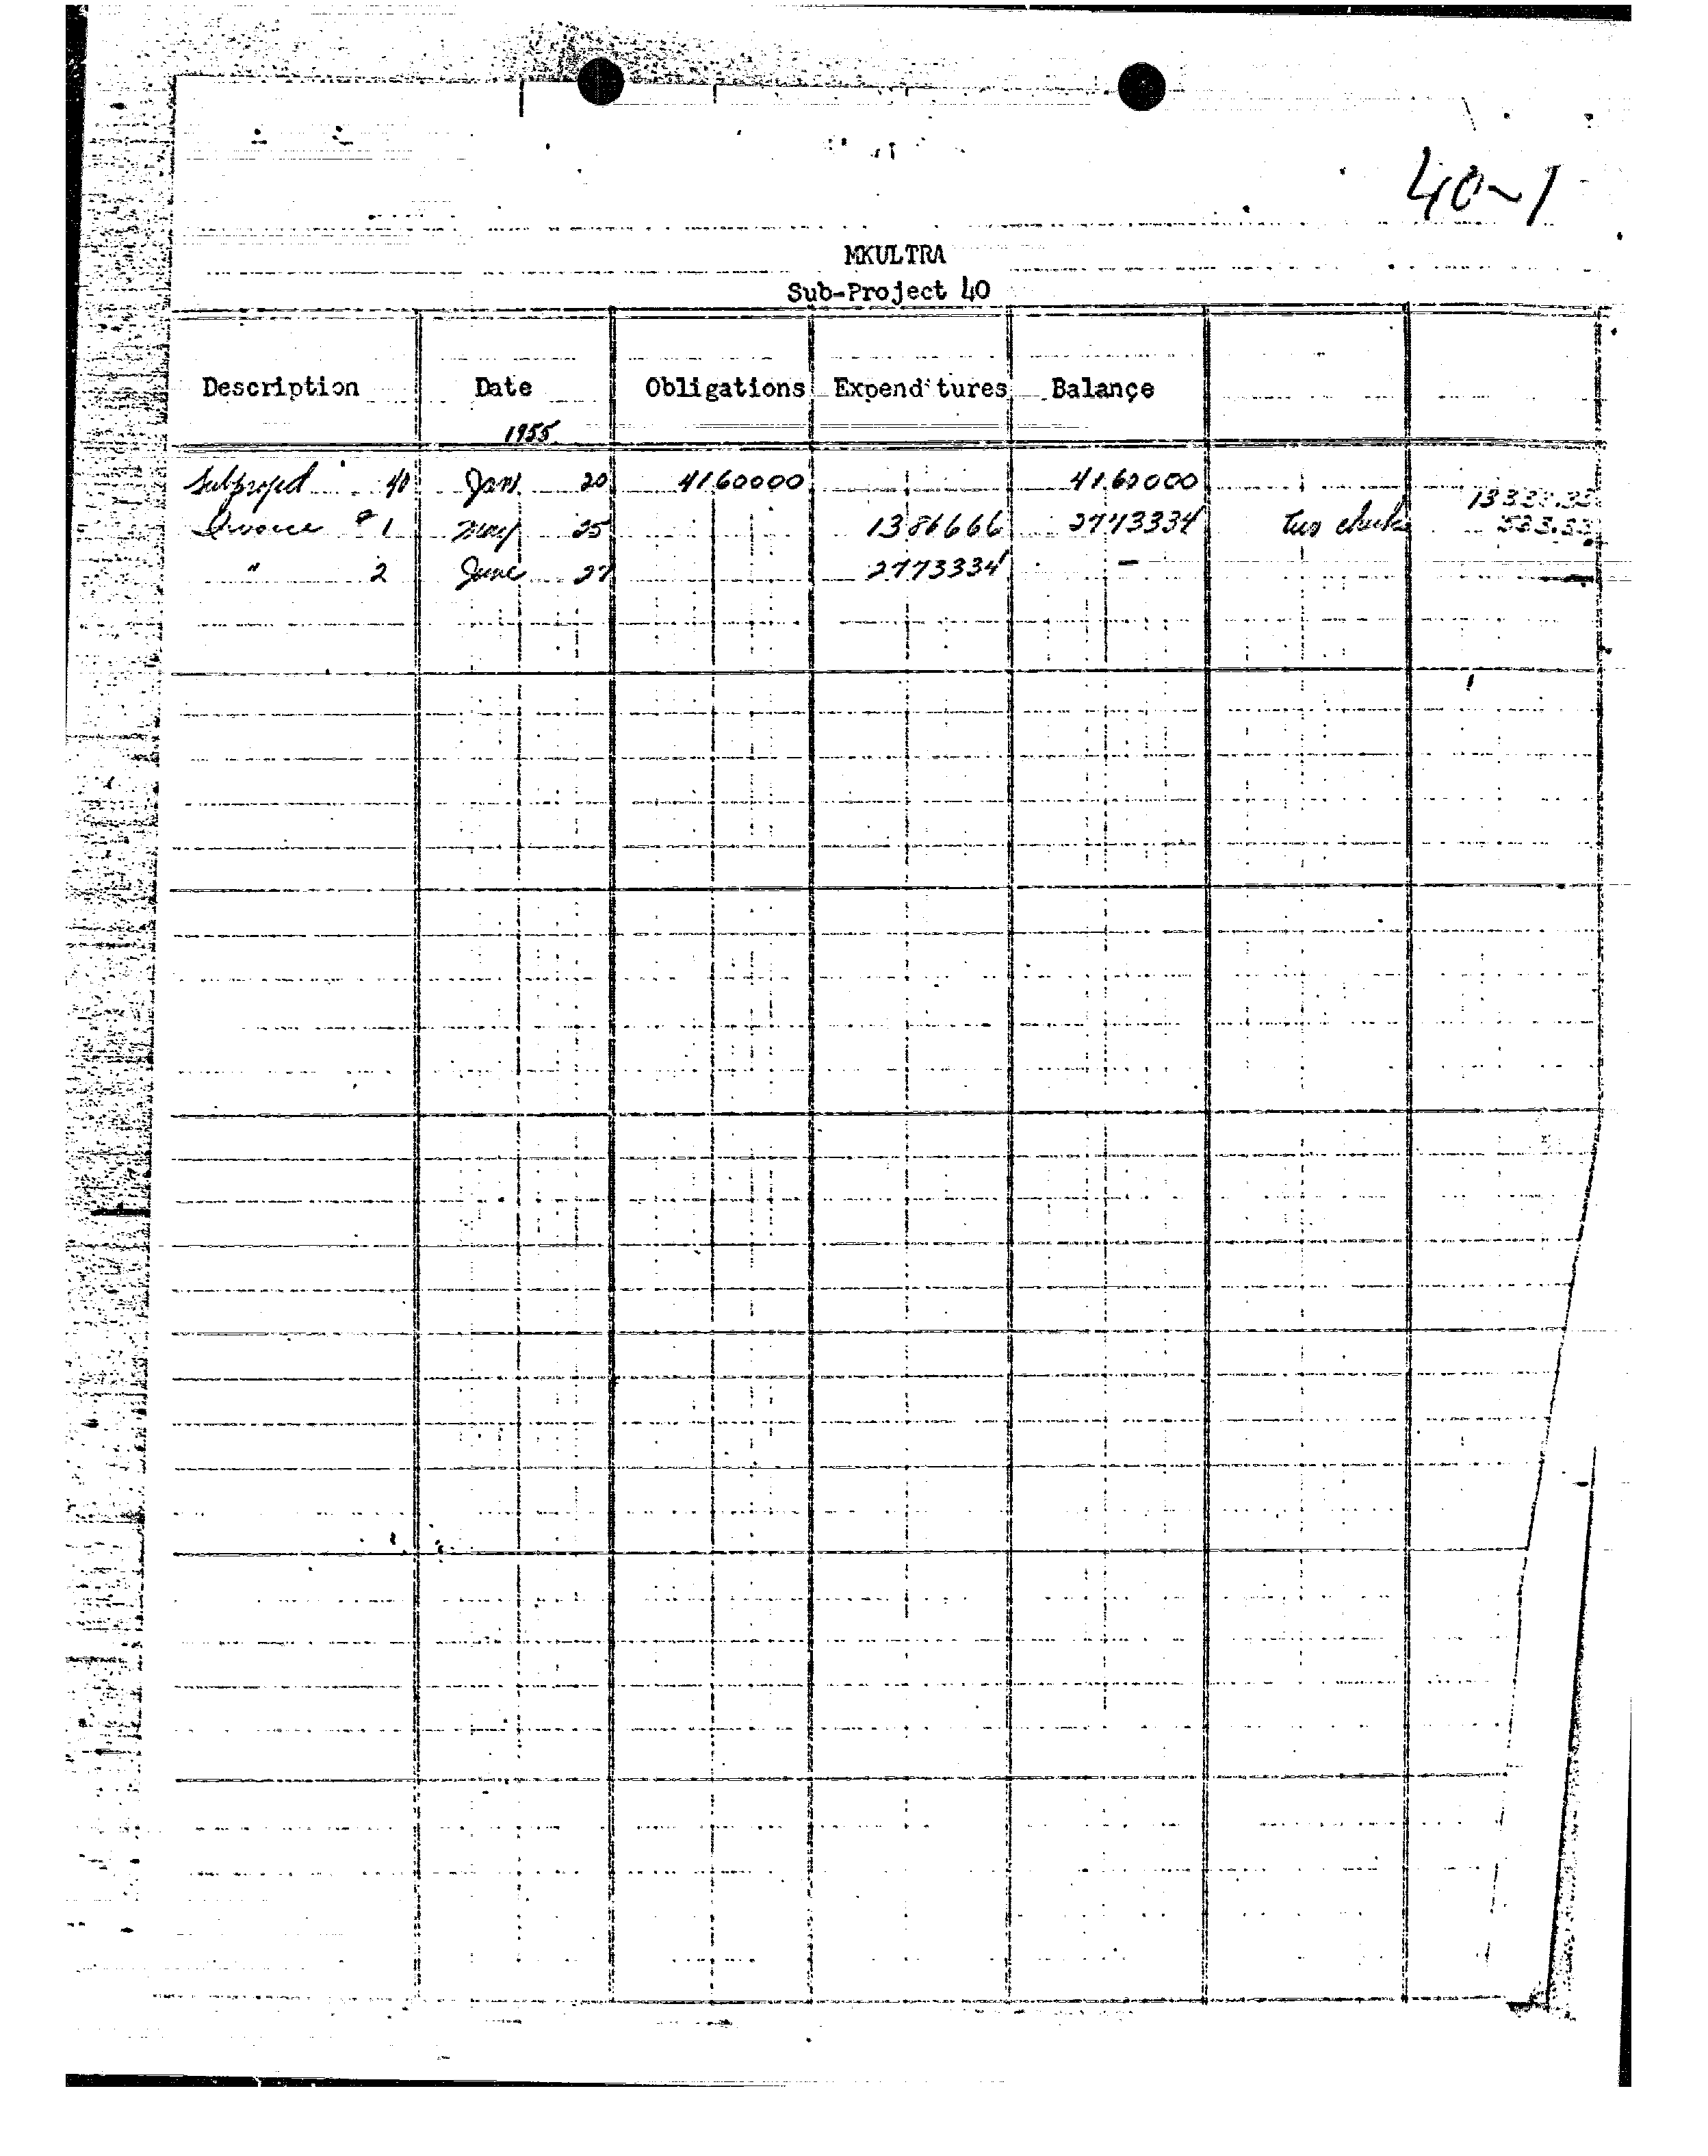 40-1
MKULTRA
Sub-Project 40
Description Date Obligations Expenditures Balance
1955
Subproject 40 Jan 20 4160000 4160000
Invoice #1 May 25 1386666 2773334 two checks 13333.33
533.33
" 2 June 27 2773334 —